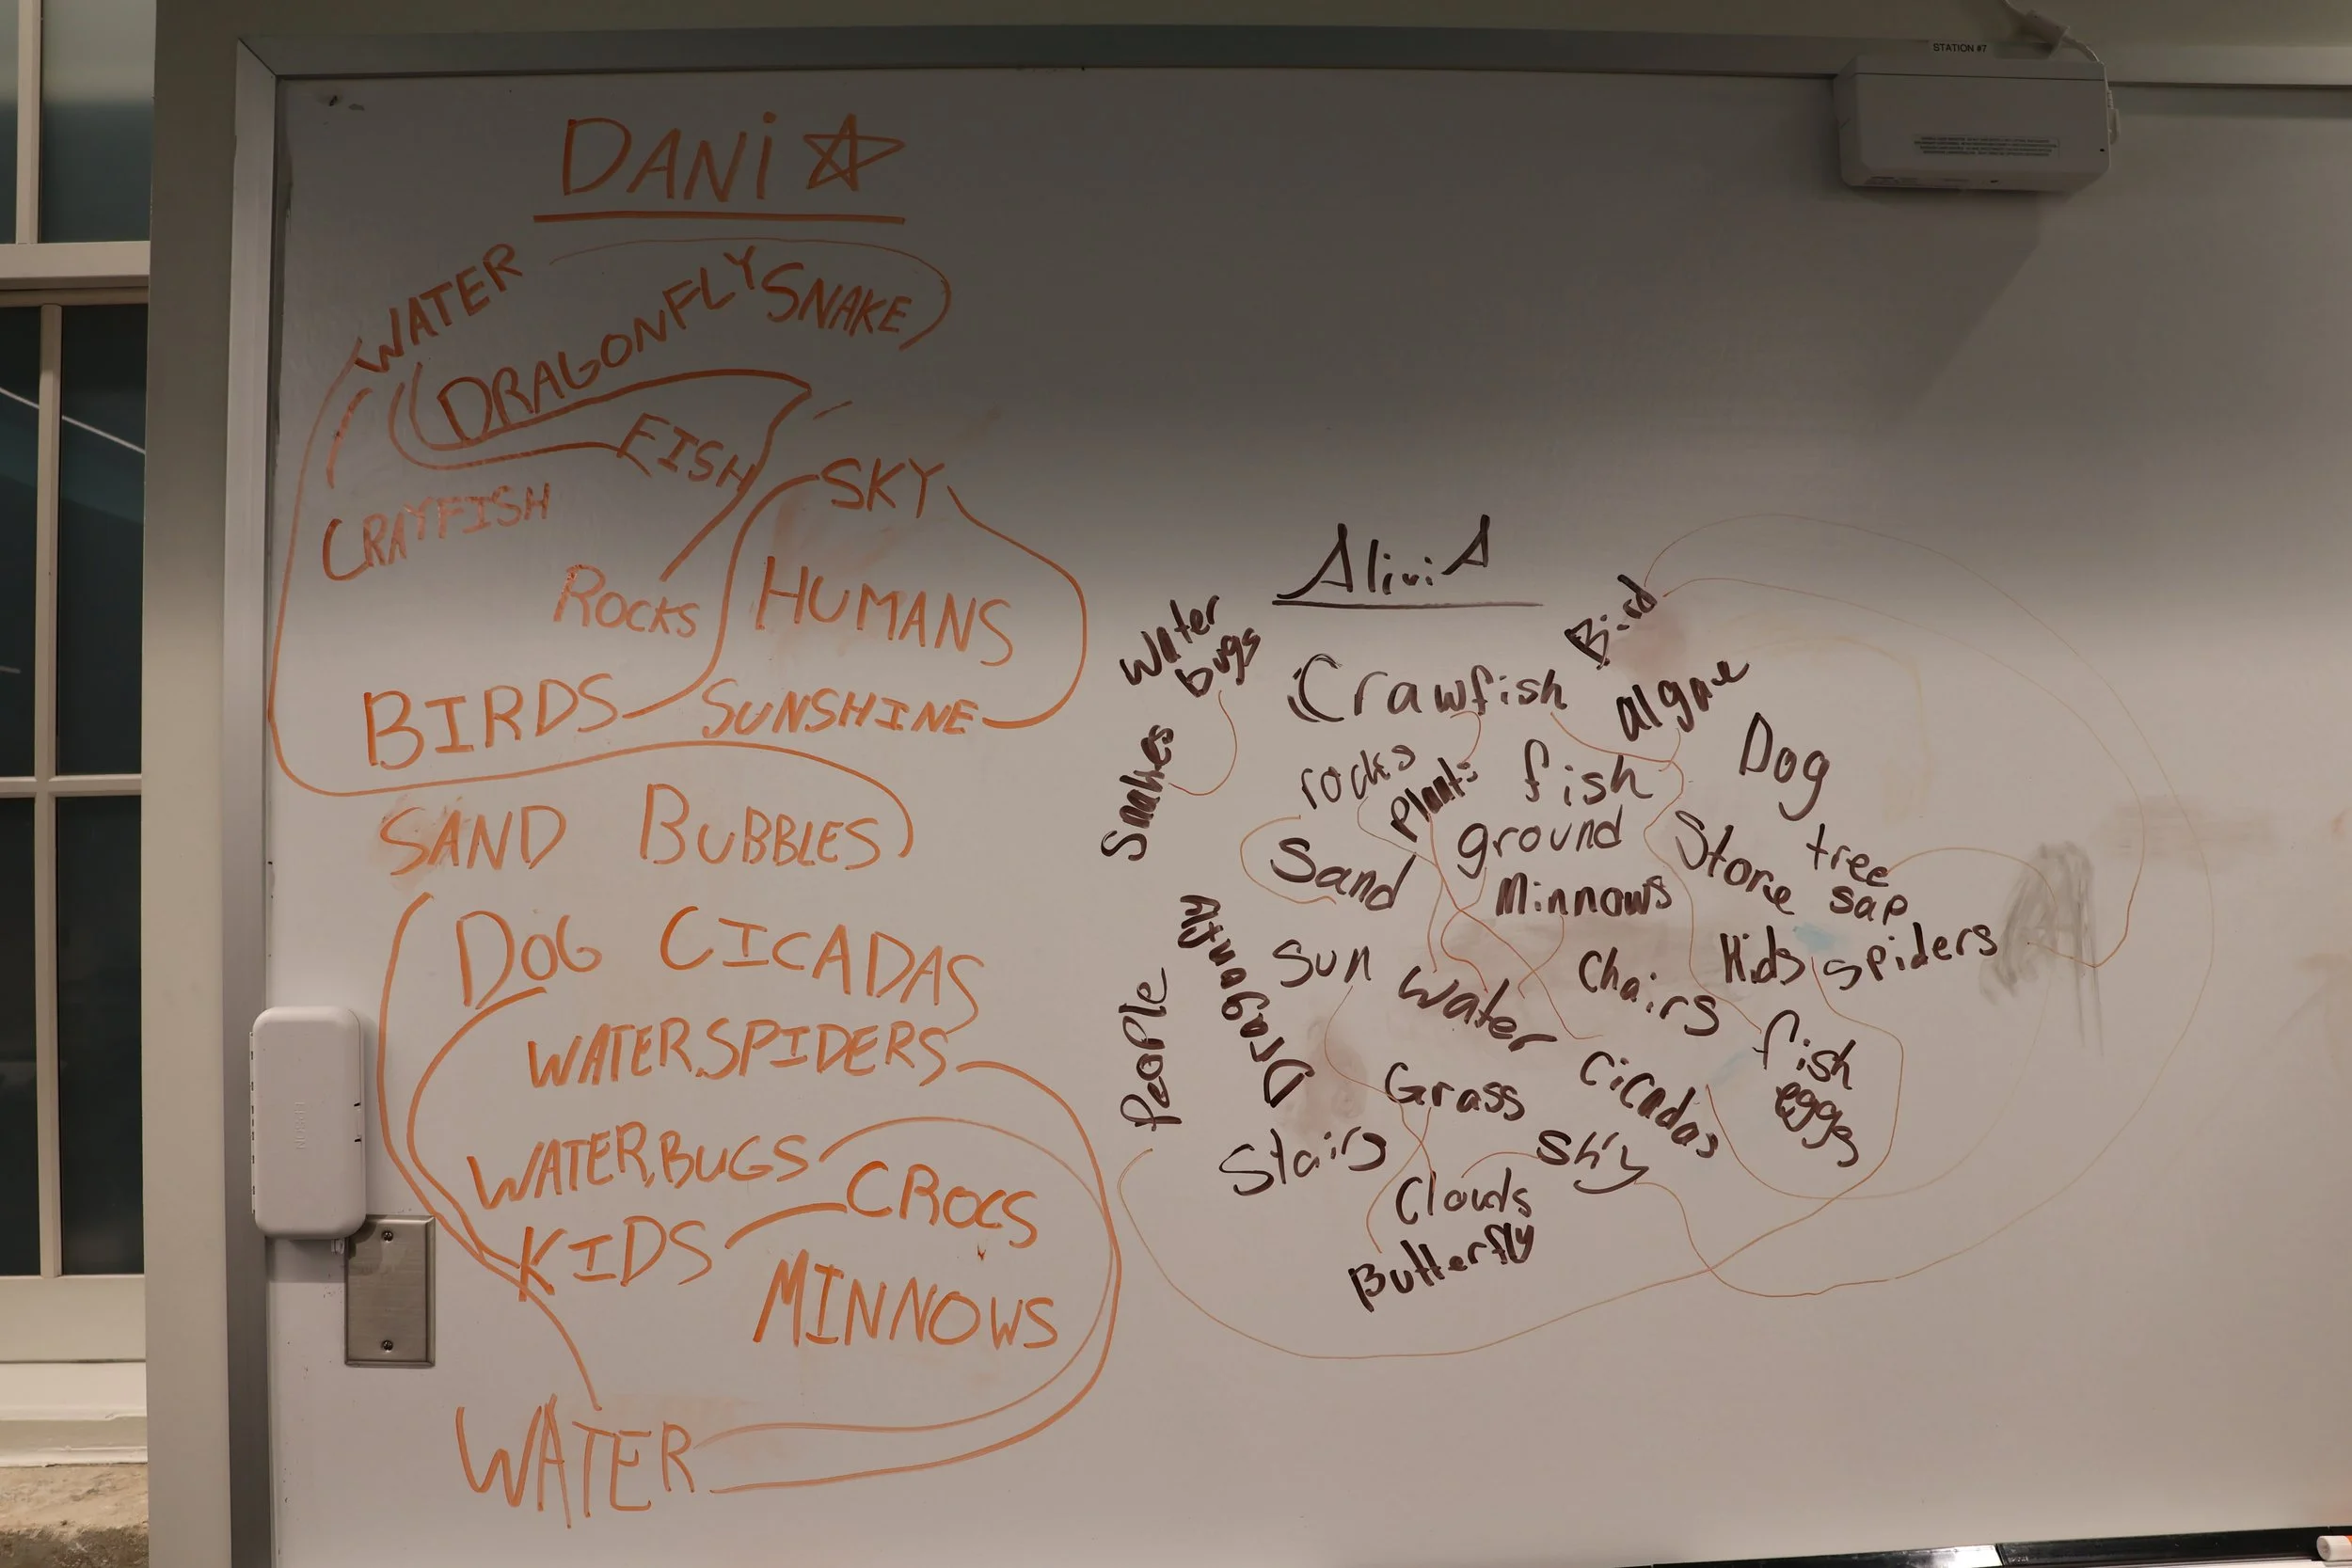 STATION #7
DANi
WATER
DRAGONFLY SNAKE
FISH
CRAYFISH
SKY
ROCKS
HUMANS
BIRDS
SUNSHINE
SAND BUBBLES
DOG CICADAS
WATER SPIDERS
WATER BUGS
CROCS
KIDS
MINNOWS
WATER
AliviA
Water
bugs
Bird
Crawfish
algae
Snakes
rocks
Plants
fish
Dog
ground
Sand
Minnows
Store
tree
sap
Dragonfly
Sun
Water
Chairs
Kids
spiders
People
Grass
Cicadas
fish
eggs
Stairs
Sky
Clouds
Butterfly